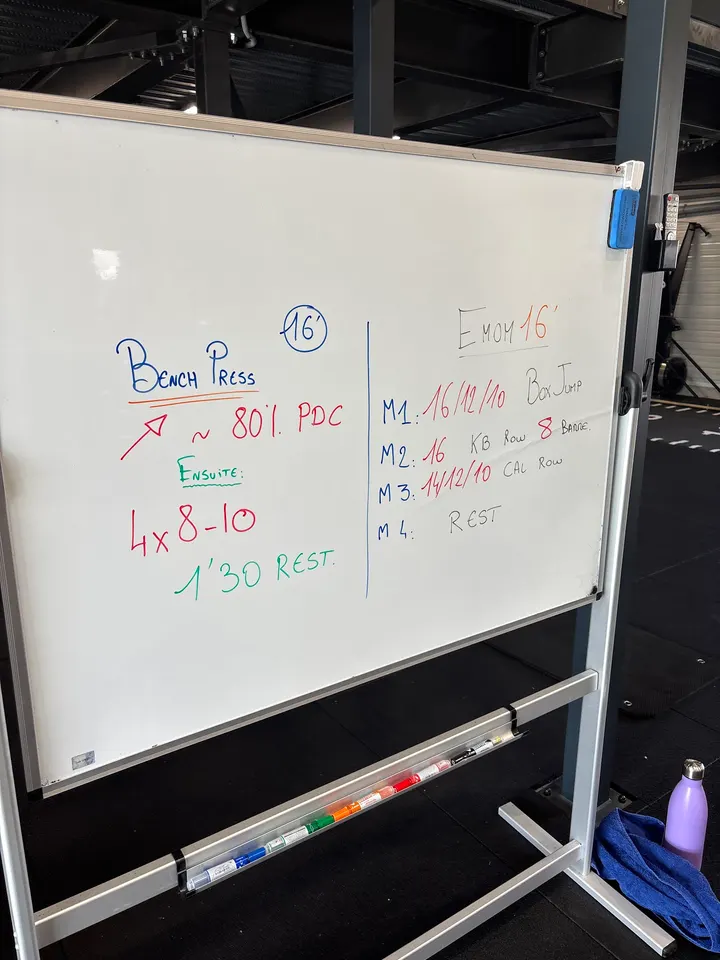 16'
BENCH PRESS
~ 80% PDC
ENSUITE:
4x8-10
1'30 REST.
EMOM 16'
M1: 16/12/10 BOX JUMP
M2: 16 KB ROW 8 BARRE.
M3: 14/12/10 CAL ROW
M4: REST